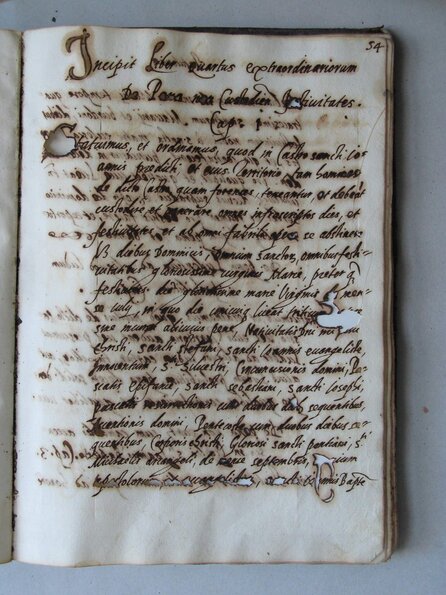 54
Incipit Liber quartus extraordinariorum
De Pena non Custodien. festivitates.
Cap. 1
Statuimus, et ordinamus, quod in Castro sancti Io-
annis predicti et eius Territorio, tam homines
de dicto Castro quam forenses, teneantur, et debeant
custodire, et honorare omnes infrascriptos dies, et
festivitates, et ab omni fabrili opere se abstinere
diebus Dominicis, omnium sanctor. omnibus festi-
vitatibus gloriosissime virginis Marie, preter
festivitatem gloriosissime marie Virginis men-
se July, in quo die
sine
christi, sancti stefani, sancti Ioannis evangeliste,
Innocentum, Silvestri, Circumcisionis domini, Pas-
catis epifanie, sancti sebastiani, sancti Iosephi,
pascatis resurrectionis cum duobus dieb. sequentibus,
Ascentionis domini, Pentecoste cum duobus diebus se-
quentibus, Corporis christi, Gloriosi sancti pantiani, sti
Michaelis arcangeli, de mense septembris,
apostolorum evangelist Bapte